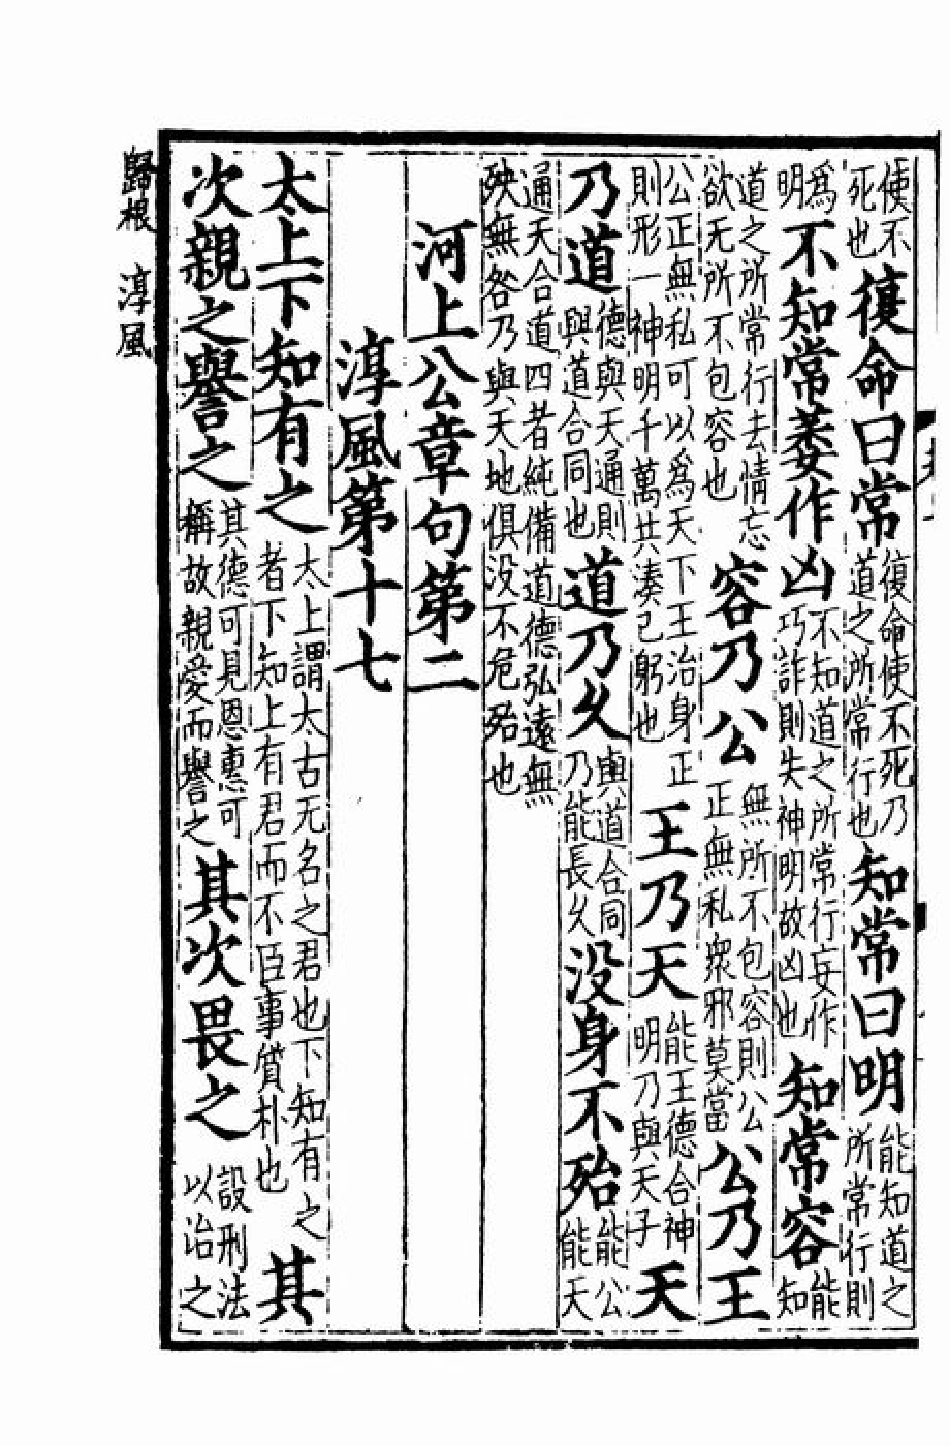 使不死也復命曰常復命使不死乃道之所常行也知常曰明能知道之所常行則
爲明不知常萎作凶不知道之所常行妄作巧詐則失神明故凶也知常容能知
道之所常行去情忘欲无所不包容也容乃公無所不包容則公正無私衆邪莫當公乃王
公正無私可以爲天下王治身正則形一神明千萬共湊己躬也王乃天能王德合神明乃與天子天
乃道德與天通則與道合同也道乃乆與道合同乃能長乆没身不殆能公能天
通天合道四者純備道德弘遠無殃無咎乃與天地俱没不危殆也
河上公章句第二
淳風第十七
太上下知有之太上謂太古无名之君也下知有之者下知上有君而不臣事質朴也其
次親之譽之其德可見恩惠可稱故親愛而譽之其次畏之設刑法以治之
歸根 淳風